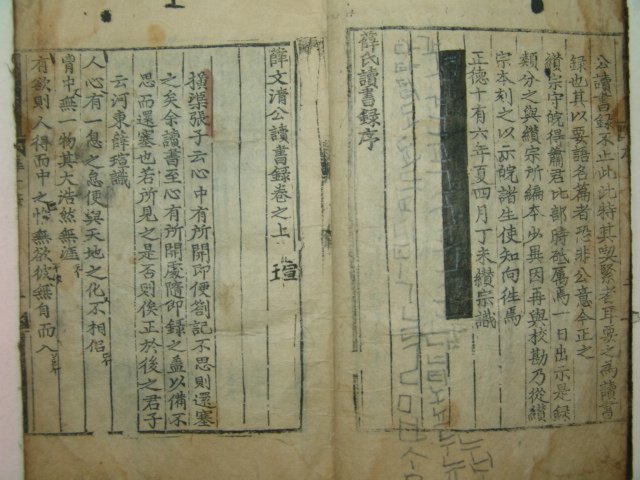 公讀書錄不止此此特其喫緊者耳要之為讀書
錄也其以要語名篇者恐非公意今正之
纘宗守皖得蕭君比部時砥厲焉一日出示是錄
類分之與纘宗所編本少異因再與校勘乃從纘
宗本刻之以示皖諸生使知向徃焉
正德十有六年夏四月丁未纘宗識
薛氏讀書錄序
薛文清公讀書錄卷之上
瑄
橫渠張子云心中有所開即便劄記不思則還塞
之矣余讀書至心有所開處隨即錄之盖以備不
思而還塞也若所見之是否則俟正於後之君子
云河東薛瑄識
人心有一息之怠便與天地之化不相侶
胷中無一物其大浩然無涯
有欲則人得而中之惟無欲彼無自而入